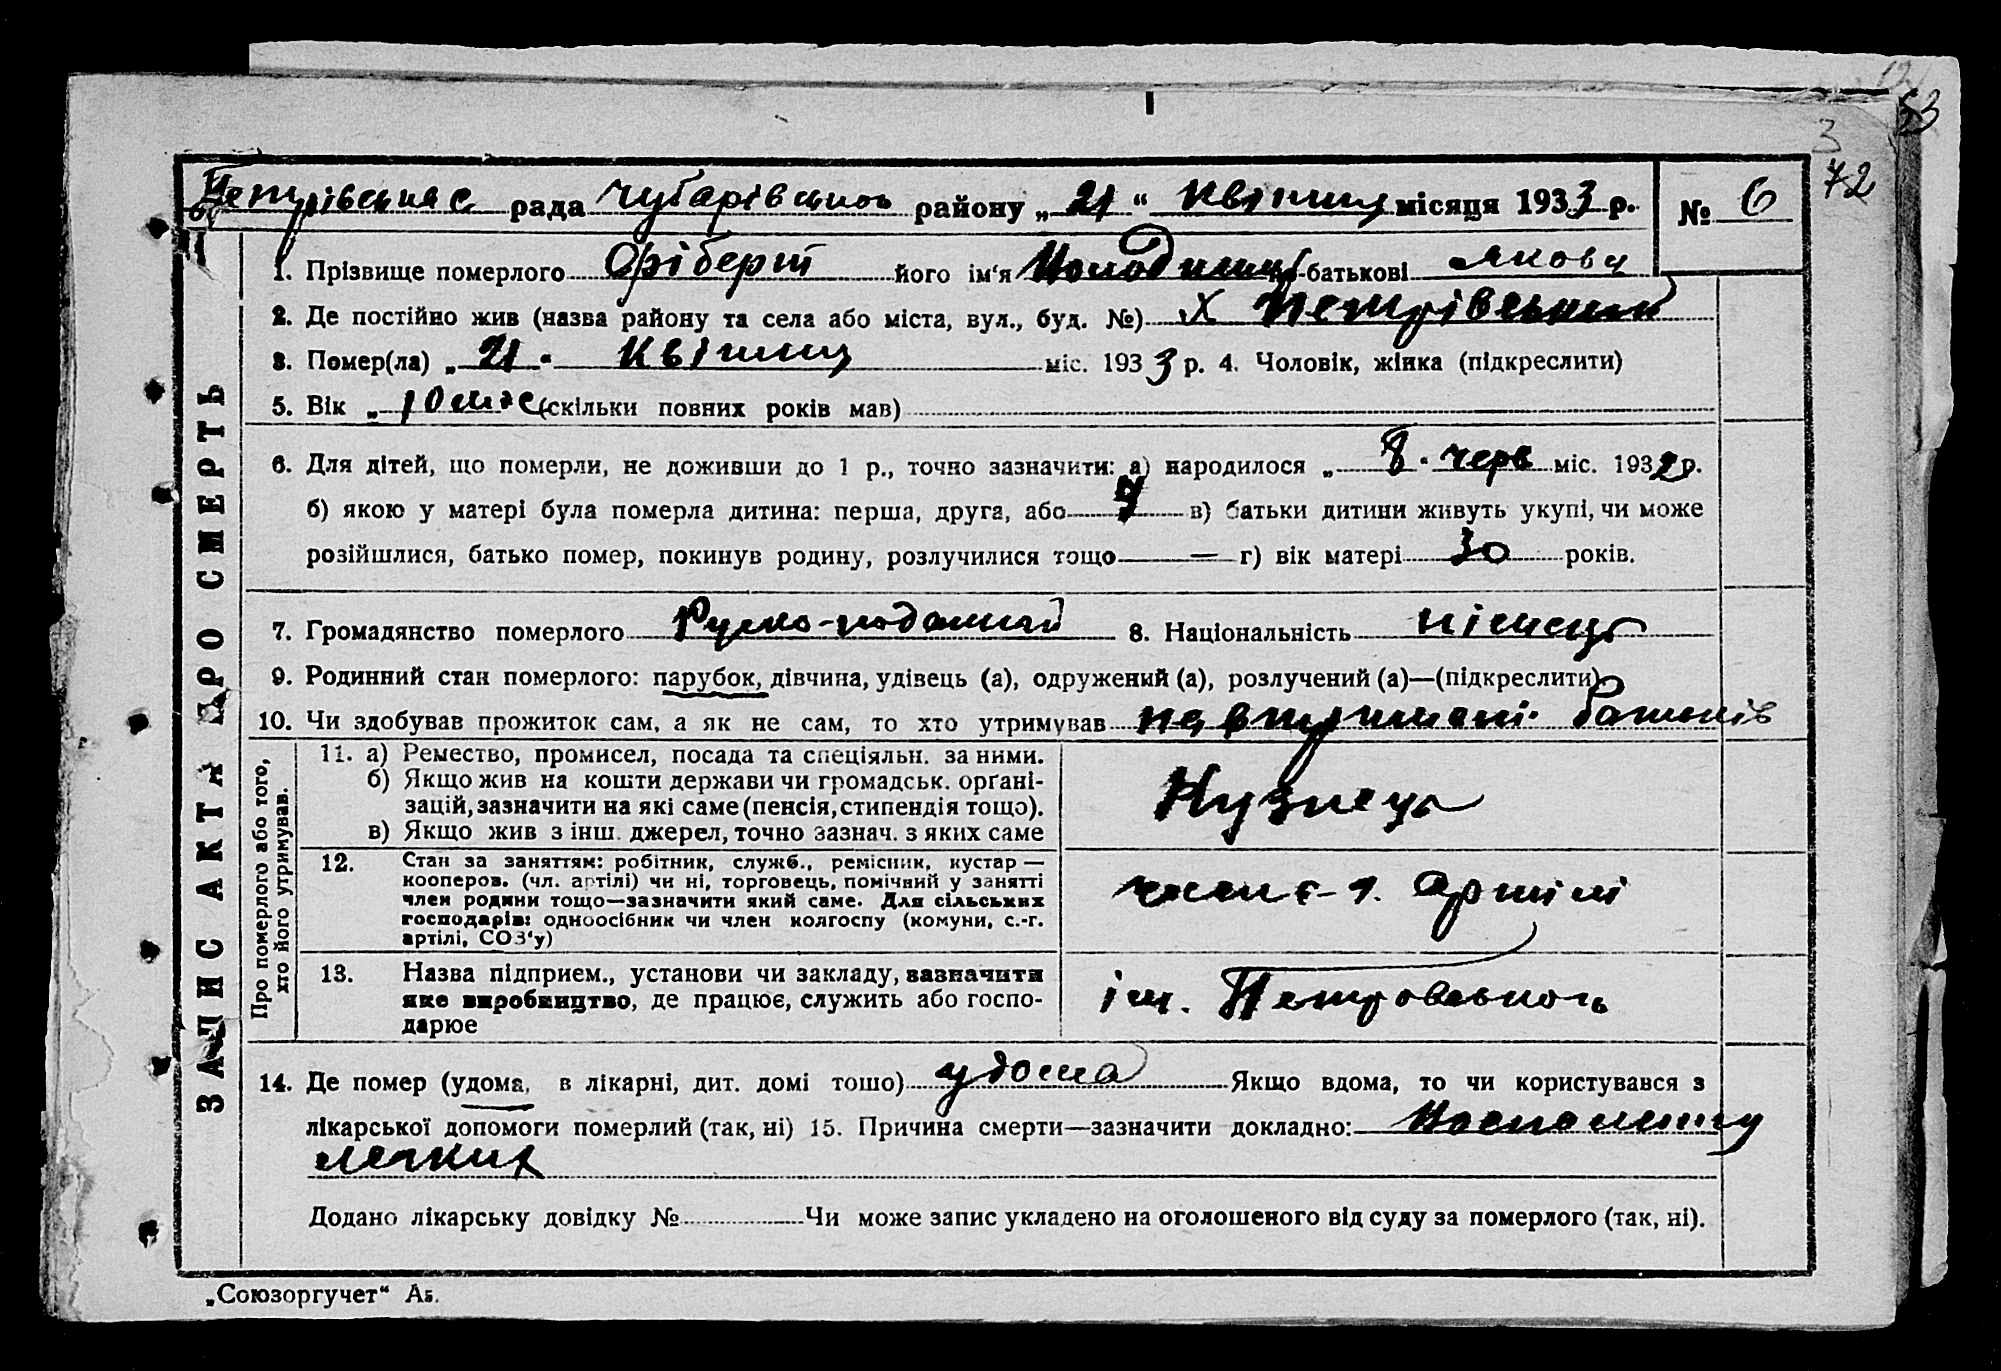 12
53
3
72
Петрівська с рада Чубарівського району „21“ Квітня місяця 1933 р. № 6
ЗАПИС АКТА ПРО СМЕРТЬ
1. Прізвище померлого Фріберт його ім'я батькові Якова
2. Де постійно жив (назва району та села або міста, вул., буд. №) х Петрівський
3. Помер(ла) „21“ Квітня міс. 1933 р. 4. Чоловік, жінка (підкреслити)
5. Вік „10 міс (скільки повних років мав)
6. Для дітей, що померли, не доживши до 1 р., точно зазначити: а) народилося „8“ черв міс. 1932 р.
б) якою у матері була померла дитина: перша, друга, або 7 в) батьки дитини живуть укупі, чи може
розійшлися, батько помер, покинув родину, розлучилися тощо — г) вік матері 30 років.
7. Громадянство померлого Руско-поданий 8. Національність німець
9. Родинний стан померлого: парубок, дівчина, удівець (а), одружений (а), розлучений (а)—(підкреслити)
10. Чи здобував прожиток сам, а як не сам, то хто утримував на втриманні батьків
Про померлого або того,
хто його утримував.
11. а) Ремество, промисел, посада та спеціяльн. за ними.
б) Якщо жив на кошти держави чи громадськ. органі-
зацій, зазначити на які саме (пенсія, стипендія тощо).
в) Якщо жив з інш. джерел, точно зазнач. з яких саме
Кузнець
12. Стан за заняттям: робітник, служб., ремісник, кустар —
кооперов. (чл. артілі) чи ні, торговець, помічний у занятті
член родини тощо—зазначити який саме. Для сільських
господарів: одноосібник чи член колгоспу (комуни, с.-г.
артілі, СОЗ'у)
член с-г. Артілі
13. Назва підприєм., установи чи закладу, зазначити
яке виробництво, де працює, служить або госпо-
дарює
ім. Петровського
14. Де помер (удома, в лікарні, дит. домі тошо) удома Якщо вдома, то чи користувався з
лікарської допомоги померлий (так, ні) 15. Причина смерти—зазначити докладно:
легких
Додано лікарську довідку № Чи може запис укладено на оголошеного від суду за померлого (так, ні).
„Союзоргучет“ А5.